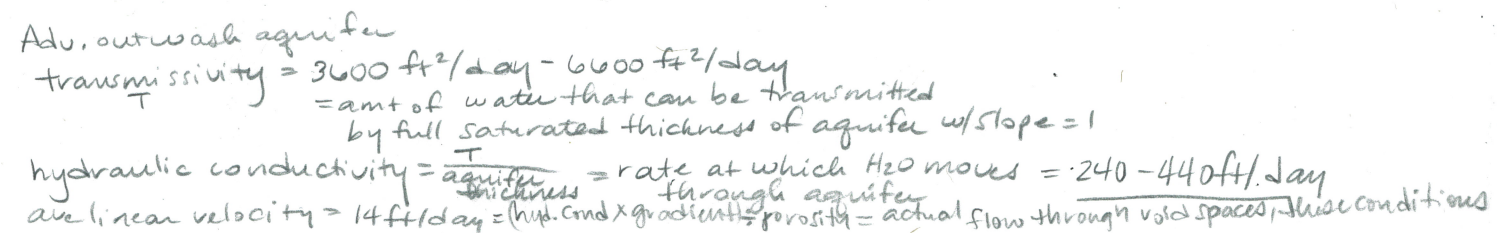 Adv. outwash aquifer
transmissivity = 3600 ft²/day - 6600 ft²/day
T
= amt of water that can be transmitted
by full saturated thickness of aquifer w/slope = 1
hydraulic conductivity = T / aquifer thickness = rate at which H2O moves through aquifer = 240 - 440 ft/day
ave linear velocity = 14 ft/day = (hyd. cond x gradient) ÷ porosity = actual flow through void spaces, these conditions